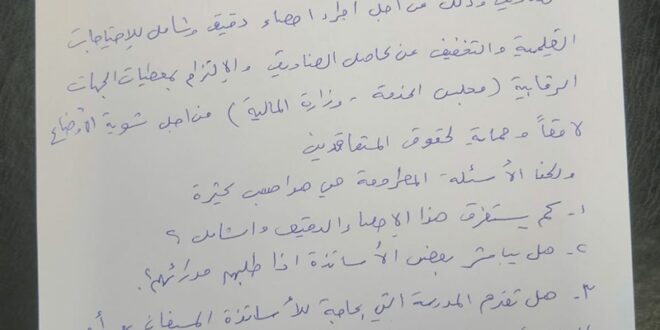 وذلك من أجل اجراء احصاء دقيق وشامل للإحتياجات
التعليمية والتخفيف عن كاهل الصناديق والإلتزام بمعطيات الجهات
الرقابية (مجلس الخدمة - وزارة المالية) من اجل تسوية الأوضاع
لاحقاً وحماية لحقوق المتعاقدين
ولكن الأسئلة المطروحة من صاحب كثيرة
١- كم يستغرق هذا الإحصاء الدقيق والشامل ؟
٢- هل يباشر بعض الأساتذة اذا طلبهم مدرائهم؟
٣- هل تقدم المدرسة التي بحاجة للأساتذة المستعان بهم أن